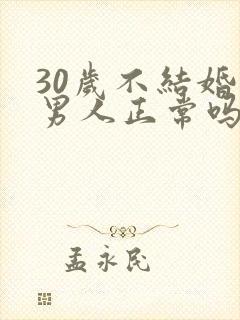 30歲不結婚
男人正常吗
孟永民